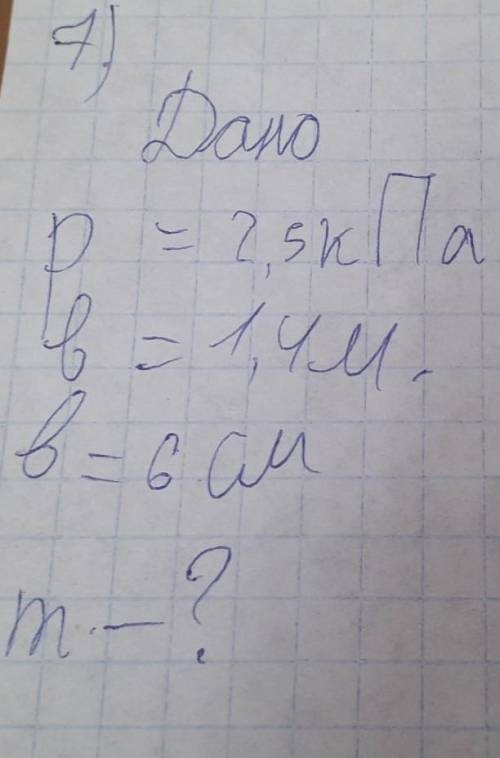 7)
Дано
p = 2,5кПа
в = 1,4м.
в = 6 см
m - ?